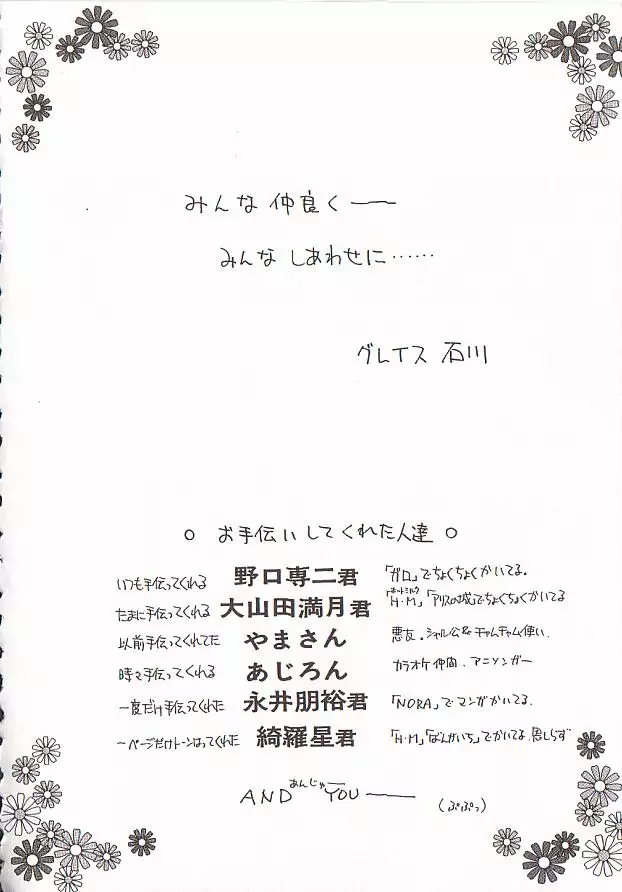 みんな 仲良く──
みんな しあわせに……
グレイス 石川
○ お手伝いしてくれた人達 ○
いつも手伝ってくれる 野口専二君 「ガロ」でちょくちょくかいてる.
たまに手伝ってくれる 大山田満月君 「H・M」「アリスの城」でちょくちょくかいてる
以前手伝ってくれてた やまさん 悪友. シャルル公& チャムチャム使い.
時々手伝ってくれる あじろん カラオケ仲間. アニソンガー
一度だけ手伝ってくれた 永井朋裕君 「NORA」でマンガかいてる.
一ページだけトーンはってくれた 綺羅星君 「H・M」「ばんがいち」でかいてる. 恩しらず
あんじゅ
AND YOU── (ぷぷっ)